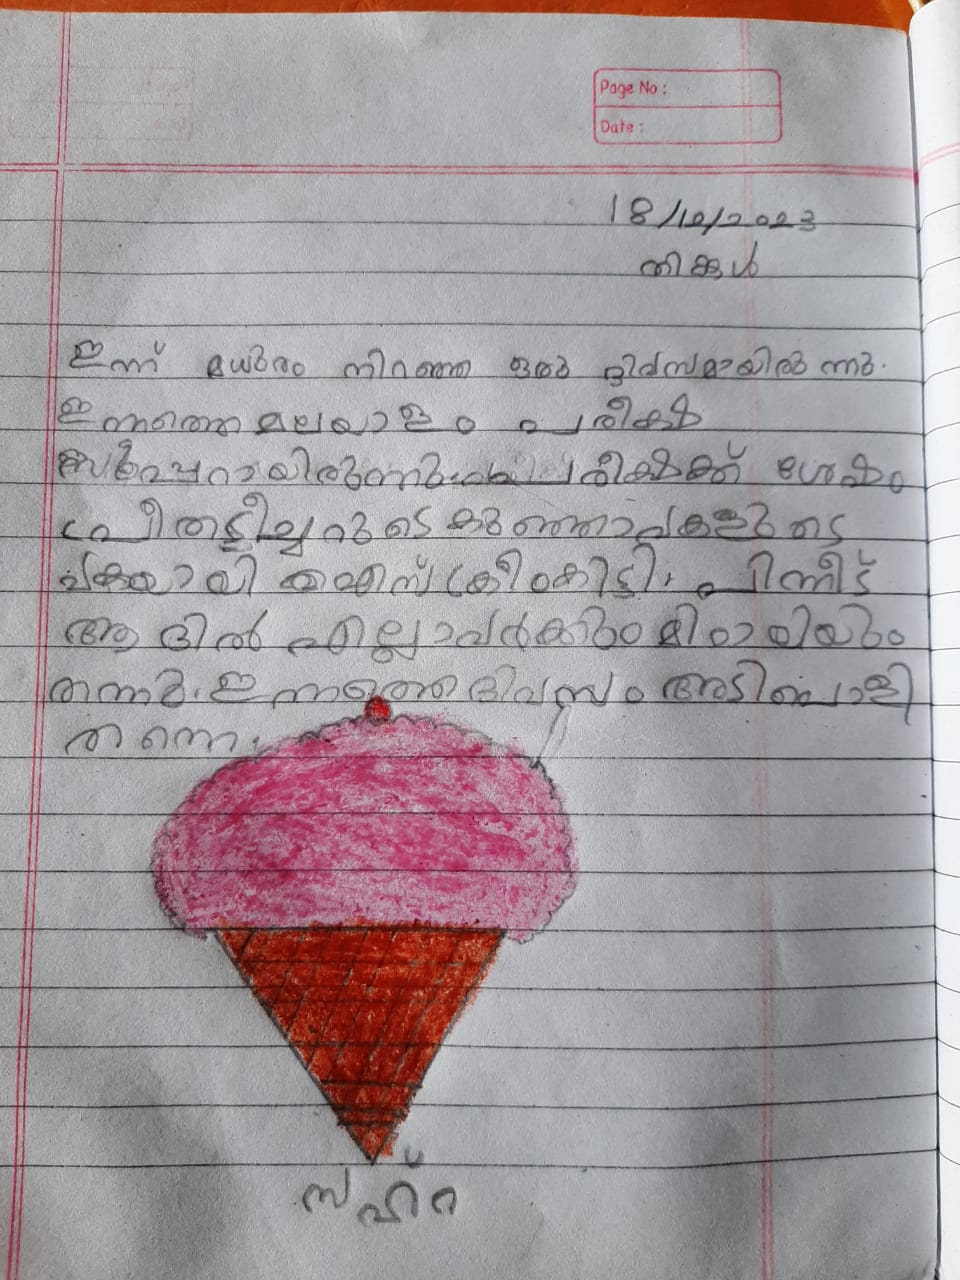 Page No :
Date :
18/12/2023
തിങ്കൾ
ഇന്ന് മധുരം നിറഞ്ഞ ഒരു ദിവസമായിരുന്നു.
ഇന്നത്തെ മലയാളം പരീക്ഷ
എളുപ്പമായിരുന്നു. പരീക്ഷക്ക് ശേഷം
പ്രീത ടീച്ചറുടെ കുഞ്ഞാവകളുടെ
വകയായി ഐസ്ക്രീം കിട്ടി. പിന്നീട്
ആദിൽ എല്ലാവർക്കും മിഠായിയും
തന്നു. ഇന്നത്തെ ദിവസം അടിപൊളി
തന്നെ.